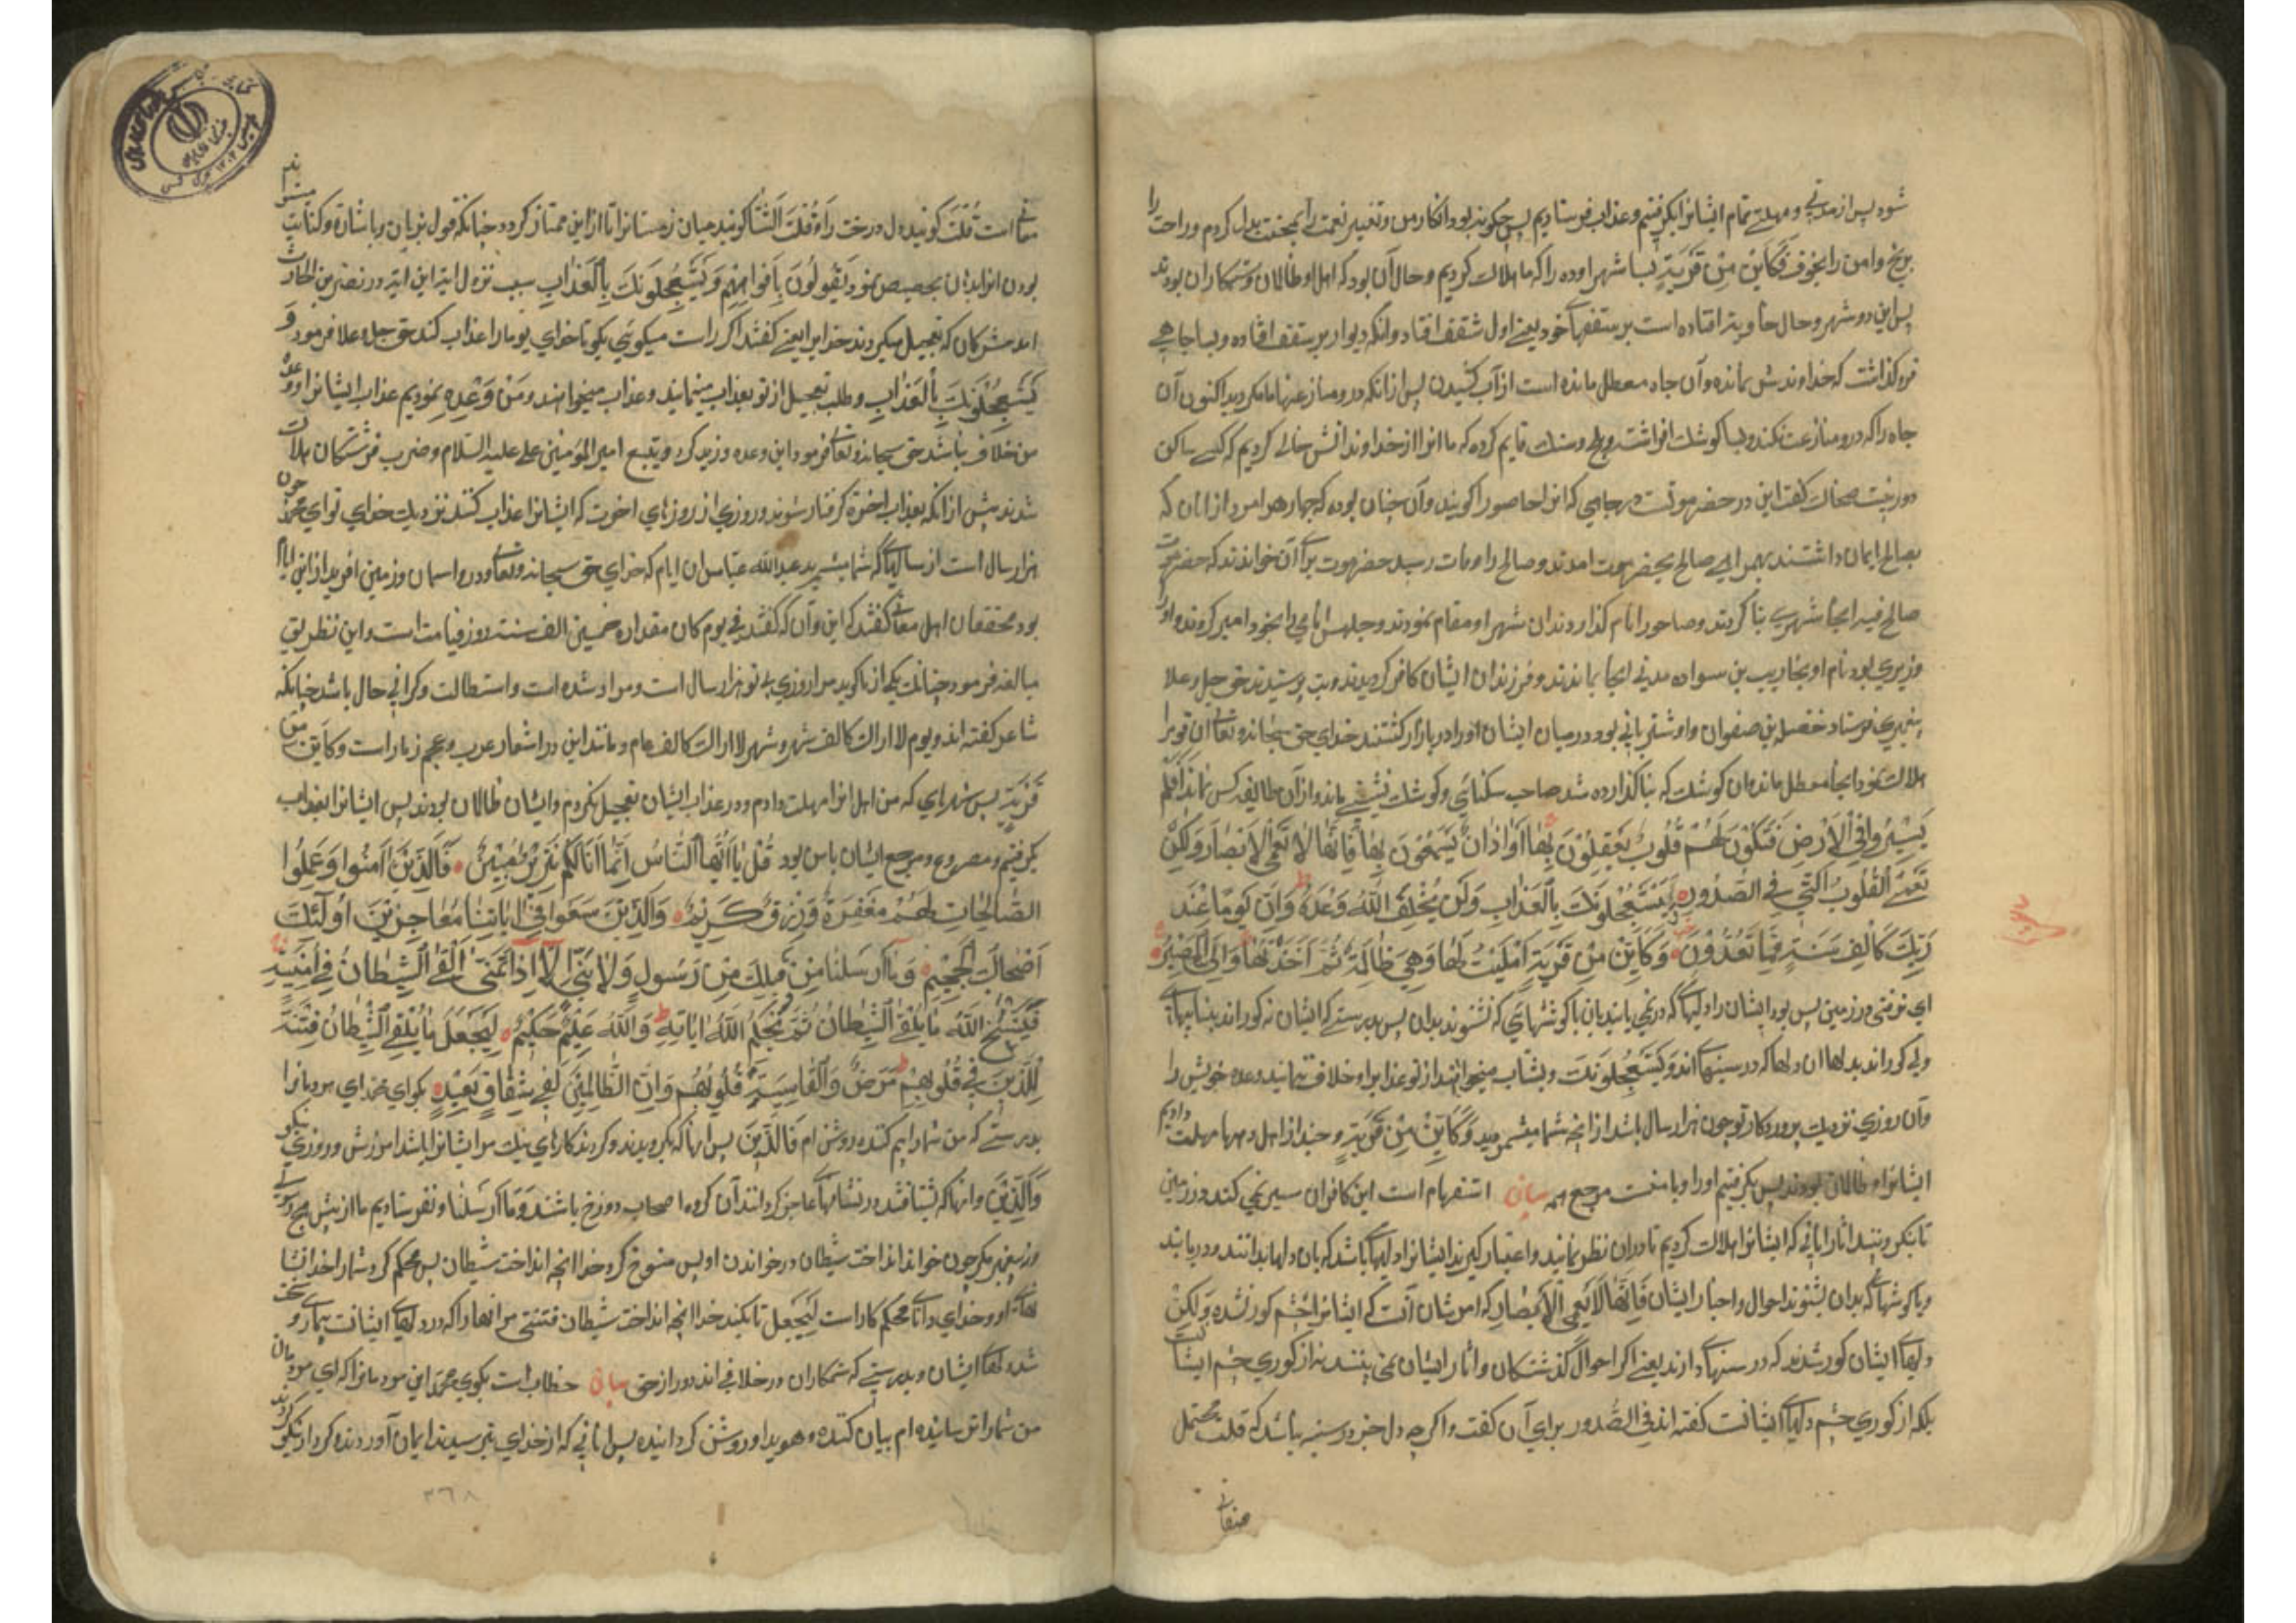 شود پس از مدتی و مهلت تمام ایشانرا بگرفتیم و عذاب فرستادیم پس چگونه بود انکار من و تغییر نعمت را بمحنت بدل کردم و راحت را
برنج و امن را بخوف فَكَاَيِّنْ مِنْ قَرْيَةٍ بسا شهر و ده را که ما هلاک کردیم و حال آن بود که اهل او ظالمان و ستمکاران بودند
پس این دو شهر و حال خاویه افتاده است بر سقفهای خود یعنی اول سقف افتاد وانکه دیوار بر سقف افتاده و بسا چاهی
فرو گذاشت که خداوندش نمانده و آن چاه معطل مانده است از آب کشیدن پس از انکه درو منازعتها مامکردید اکنون آن
چاه را که درو منازعت نکند و بسا کوشک افراشته و بکچ و سنک قایم کرده که ما انرا از خداوندانش خالی کردیم که کسی ساکن
دور نیست ضحاک کفت این در حضرموتست بهر جایی که انرا حاصورا کویند و آن چنان بوده که چهار هزار مرد از انان که
بصالح ایمان داشتند بهمراهی صالح بحضرموت امدند و صالح را وفات رسید حضرموت برای آن خواندند که حضر موت
صالح فیه انجا شهری بنا کردند و حاصورا نام کذاردند دران شهر او مقام نمودند و جلهس نامی را بخود امیر کردند و او را
وزیری بود نام او بخاریب بن سواده مدتی انجا بماندند و فرزندان ایشان کافر کردیدند و بت پرستیدند حق جل و علا
پیغمبری فرستاد حنظله بن صفوان و او شتربانی بود در میان ایشان او را در بازار کشتند خدای حق سبحانه و تعالی ان قوم را
هلاک نمود و انجا معطل ماند و ان کوشک که بنا کذارده شد صاحب سکنائی و کوشک نشینی نماند و از آن طایفه کس نماند اَفَلَمْ
يَسِيرُوا فِي الْاَرْضِ فَتَكُونَ لَهُمْ قُلُوبٌ يَعْقِلُونَ بِهَا اَوْ اٰذَانٌ يَسْمَعُونَ بِهَا فَاِنَّهَا لَا تَعْمَى الْاَبْصَارُ وَلٰكِنْ
تَعْمَى الْقُلُوبُ الَّتِي فِي الصُّدُورِ وَيَسْتَعْجِلُونَكَ بِالْعَذَابِ وَلَنْ يُخْلِفَ اللّٰهُ وَعْدَهُ وَاِنَّ يَوْمًا عِنْدَ
رَبِّكَ كَاَلْفِ سَنَةٍ مِمَّا تَعُدُّونَ وَكَاَيِّنْ مِنْ قَرْيَةٍ اَمْلَيْتُ لَهَا وَهِيَ ظَالِمَةٌ ثُمَّ اَخَذْتُهَا وَاِلَيَّ الْمَصِيرُ
ای نرفتند در زمین پس بود ایشان را دلهای که در نمی یابند بان یا کوشهای که نشنوند بدان پس بدرستی که ایشان نه کوراند بیناییهای
ولی کوراند بدلها ان دلها که در سینهای اند وَيَسْتَعْجِلُونَكَ و بشتاب میخواهند از تو عذاب را و خلاف ننمایند وعده خویش را
وآن روزی نزدیک پروردکار تو چون هزار سال باشد از انچه شما میشمرید وَكَاَيِّنْ مِنْ قَرْيَةٍ و چند از اهل دهها مهلت دادیم
ایشانرا و ظالمان بودند پس بکرفتیم او را و با منست مرجع همه بیان استفهام است این کافران سیر نمی کنند در زمین
تا بنکرند اثار انانی که ایشانرا هلاک کردیم تا دران نظر نمایند و اعتبار کیرند ایشانرا دلهای باشد که بان دلها بدانند و دریابند
و یا کوشهای که بدان بشنوند احوال و اخبار ایشان فَاِنَّهَا لَا تَعْمَى الْاَبْصَارُ که امر شان آنست که ایشانرا چشم کور نشده وَلٰكِنْ
دلهای ایشان کور شدند که در سینهای دارند یعنی اکر احوال کذشتکان و اثار ایشان نمی بینند نه از کوری چشم ایشانست
بلکه از کوری چشم دلهای ایشانست کفته اند فی الصدور برای آن کفت و اکر چه دل جز در سینه نباشد که قلب محتمل
معانی است قُلْبَ کویند دل درخت را وَ قَلْبَ الشِّتَا کویند میان زمستانرا تا از این ممتاز کردد چنانکه قول بزبان و باشارة و کنایت میشرا
بودن انرا بدان تخصیص نمود يَقُولُونَ بِاَفْوَاهِهِمْ وَيَسْتَعْجِلُونَكَ بِالْعَذَابِ سبب نزول ایه این ایه در نضر بن الحارث
امد مشرکان که تعجیل میکردند عذاب را یعنی کفتند اکر راست میکوئی بکو تا خدای تو ما را عذاب کند حق جل و علا فرمود و
يَسْتَعْجِلُونَكَ بِالْعَذَابِ و طلب تعجیل از تو بعذاب مینمایند و عذاب میخواهند و من وعده نمودیم عذاب ایشانرا و وعده
من خلاف نباشد حق سبحانه و تعالی فرمود این وعده و زید کرد و بتیغ امیر المؤمنین علی علیه السلام و ضرب فرشتکان هلاک
شدند پیش از انکه بعذاب اخرة کرفتار شوند و روزی از روزهای اخرت که ایشانرا عذاب کنند نزدیک خدای تو ای محمد چون
هزار سال است از سالهای که شما میشمرید عبدالله عباس ان ایام که خدای حق سبحانه و تعالی درو اسمان و زمین افرید از این ایام
بود محققان اهل معانی کفتند که این و آن که کفتند فی یوم کان مقداره خمسین الف سنه روز قیامت است و این بطریق
مبالغه فرمود چنانک یکی از ما کوید مرا روزی بی تو هزار سال است و مراد شده است و استطالت و کرانی حال باشد چنانکه
شاعر کفته اند و یوم لا اراک کالف شهر و شهر لا اراک کالف عام و مانند این در اشعار عرب و عجم بسیار است وَكَاَيِّنْ مِنْ
قَرْيَةٍ بس شهرهای که من اهل انرا مهلت دادم و در عذاب ایشان تعجیل نکردم و ایشان ظالمان بودند پس ایشانرا بعذاب
بکرفتیم و مرجع ایشان بامن بود قُلْ يَا اَيُّهَا النَّاسُ اِنَّمَا اَنَا لَكُمْ نَذِيرٌ مُبِينٌ فَالَّذِينَ اٰمَنُوا وَعَمِلُوا
الصَّالِحَاتِ لَهُمْ مَغْفِرَةٌ وَرِزْقٌ كَرِيمٌ وَالَّذِينَ سَعَوْا فِي اٰيَاتِنَا مُعَاجِزِينَ اُولٰئِكَ
اَصْحَابُ الْجَحِيمِ وَمَا اَرْسَلْنَا مِنْ قَبْلِكَ مِنْ رَسُولٍ وَلَا نَبِيٍّ اِلَّا اِذَا تَمَنَّى اَلْقَى الشَّيْطَانُ فِي اُمْنِيَّتِهِ
فَيَنْسَخُ اللّٰهُ مَا يُلْقِي الشَّيْطَانُ ثُمَّ يُحْكِمُ اللّٰهُ اٰيَاتِهِ وَاللّٰهُ عَلِيمٌ حَكِيمٌ لِيَجْعَلَ مَا يُلْقِي الشَّيْطَانُ فِتْنَةً
لِلَّذِينَ فِي قُلُوبِهِمْ مَرَضٌ وَالْقَاسِيَةِ قُلُوبُهُمْ وَاِنَّ الظَّالِمِينَ لَفِي شِقَاقٍ بَعِيدٍ بکو ای محمد ای مردمانرا
بدرستی که من شما را بیم کننده روشن ام فَالَّذِينَ پس انها که بکرویدند و کردند کارهای نیک مر ایشانرا باشد امرزش و روزی نیکو
وَالَّذِينَ و انها که بشتافتند در نشانهای عاجز کردانند آن کروه اصحاب دوزخ باشند وَمَا اَرْسَلْنَا و نفرستادیم ما از پیش هیچ رسولی
و پیغمبر مکر چون خواند انداخت شیطان در خواندن او پس منسوخ کرد خدا انچه انداخت شیطان پس محکم کرد شما را خدا نشا
نهای او و خدای دانای محکم کار است لِيَجْعَلَ تا بکند خدا انچه انداخت شیطان فتنتی مر انها را که در دلهای ایشانست بیماری و سخت
شده دلهای ایشان و بدرستی که ستمکاران در خلافی اند دور از حق بیان خطاب است بکوی محمد این مردمانرا که ای مردمان
من شما را ترساننده ام بیان کننده و هویدا و روشن کرداننده پس انانی که از خدای بترسیدند ایمان آوردند و کردار نیکو کردند
۳۶۸